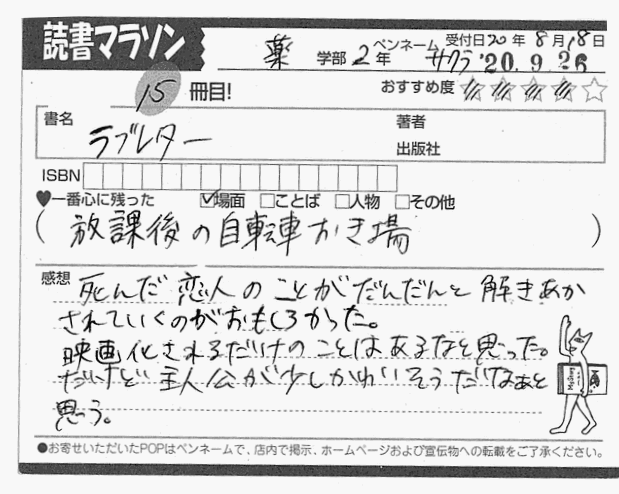 読書マラソン
薬 学部 2年 ペンネーム サクラ 受付日20年8月18日
'20.9.26
15 冊目! おすすめ度
書名 ラブレター 著者
出版社
ISBN
♥一番心に残った ☑場面 □ことば □人物 □その他
(放課後の自転車おき場)
感想 死んだ恋人のことがだんだんと解きあか
されていくのがおもしろかった。
映画化されるだけのことはあるなと思った。
だけど主人公が少しかわいそうだなぁと
思う。
●お寄せいただいたPOPはペンネームで、店内で掲示、ホームページおよび宣伝物への転載をご了承ください。